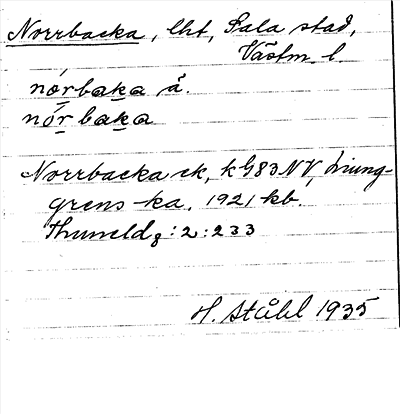 Norrbacka, lht, Sala stad,
Västm. l.
nórbaka å.
nór baka
Norrbacka ck, kG83NV, Ljung-
grens ka. 1921 kb.
Thuneld 2:233
H. Ståhl 1935